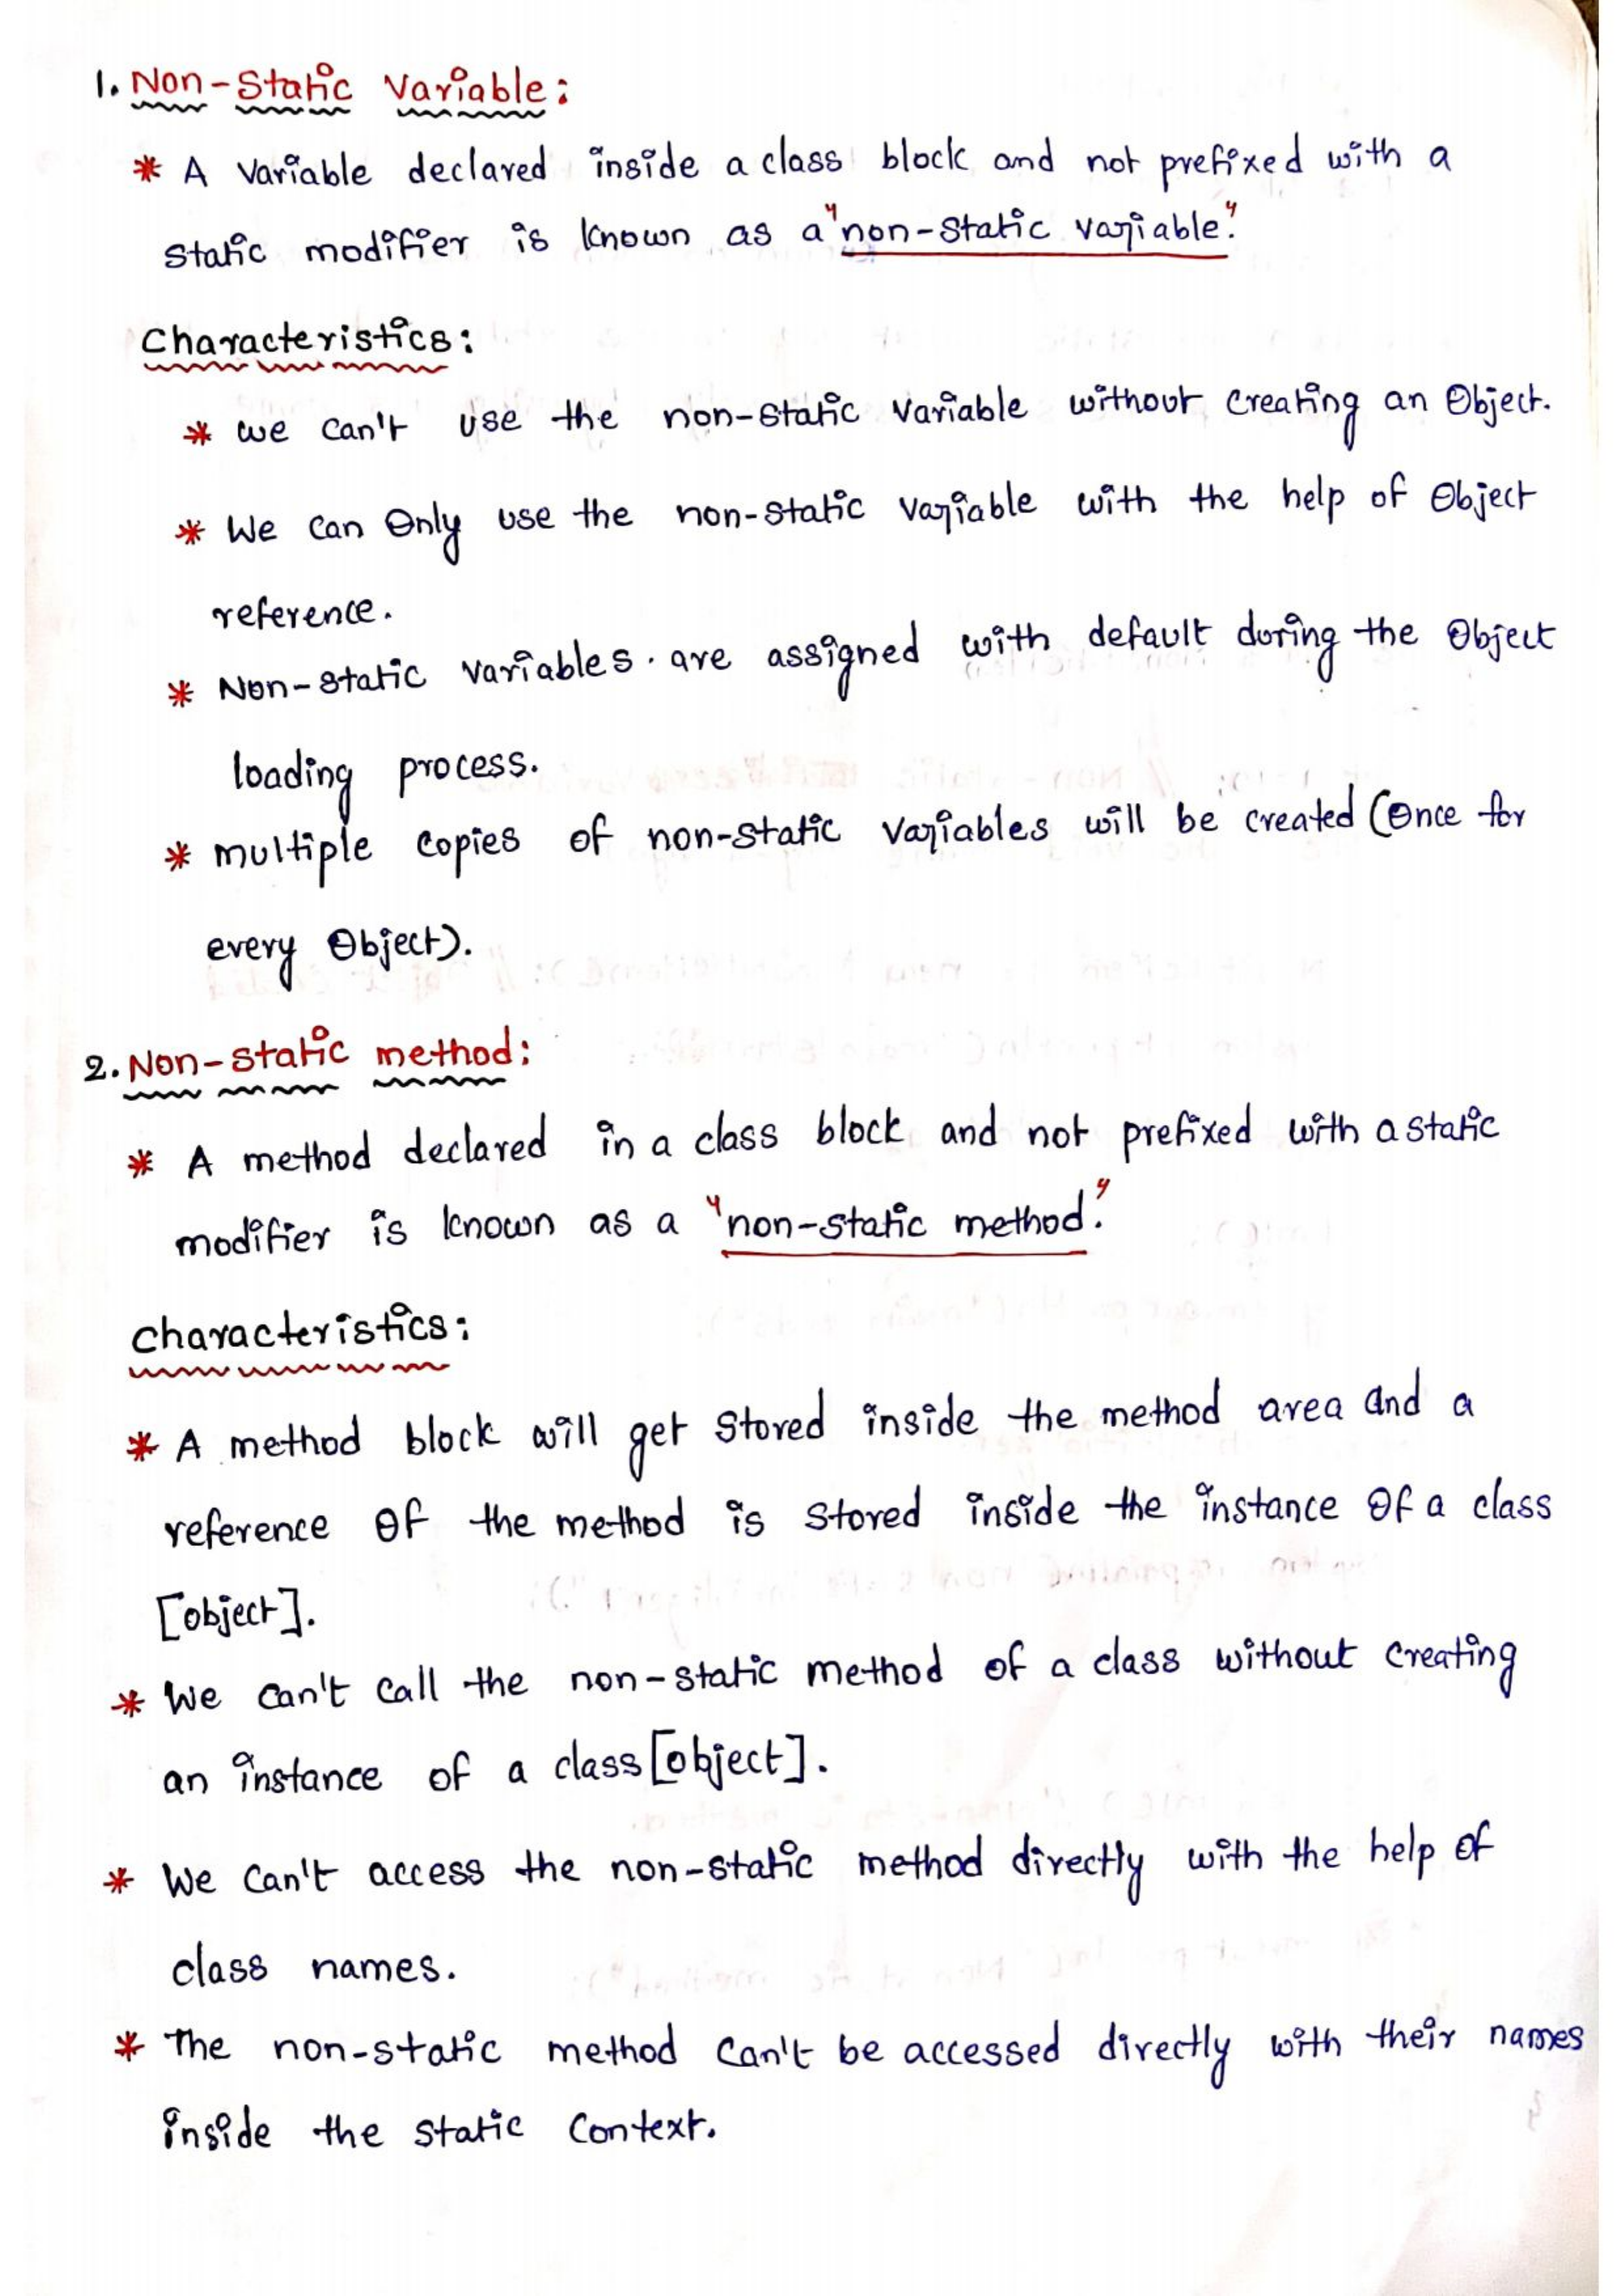 1. Non-Static Variable:
* A Variable declared inside a class block and not prefixed with a
static modifier is known as a "non-static variable."
Characteristics:
* we can't use the non-static variable without creating an Object.
* We can Only use the non-static variable with the help of Object
reference.
* Non-static variables. are assigned with default during the Object
loading process.
* multiple copies of non-static variables will be created (Once for
every Object).
2. Non-static method:
* A method declared in a class block and not prefixed with a static
modifier is known as a "non-static method."
Characteristics:
* A method block will get Stored inside the method area and a
reference of the method is stored inside the instance of a class
[object].
* We can't call the non-static method of a class without creating
an instance of a class [object].
* We can't access the non-static method directly with the help of
class names.
* The non-static method can't be accessed directly with their names
inside the static context.